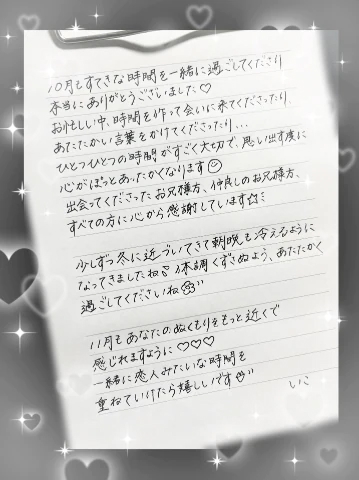 10月もすてきな時間を一緒に過ごしてくださり
本当にありがとうございました♡
お忙しい中、時間を作って会いに来てくださったり、
あたたかい言葉をかけてくださったり...
ひとつひとつの時間がすごく大切で、思い出す度に
心がぽっとあったかくなります☺
出会ってくださったお兄様方、仲良しのお兄様方、
すべての方に心から感謝しています☆ミ
少しずつ冬に近づいてきて朝晩も冷えるように
なってきましたね 体調くずさぬよう、あたたかく
過ごしてくださいね
11月もあなたのぬくもりをもっと近くで
感じれますように♡♡♡
一緒に恋人みたいな時間を
重ねていけたら嬉しいです